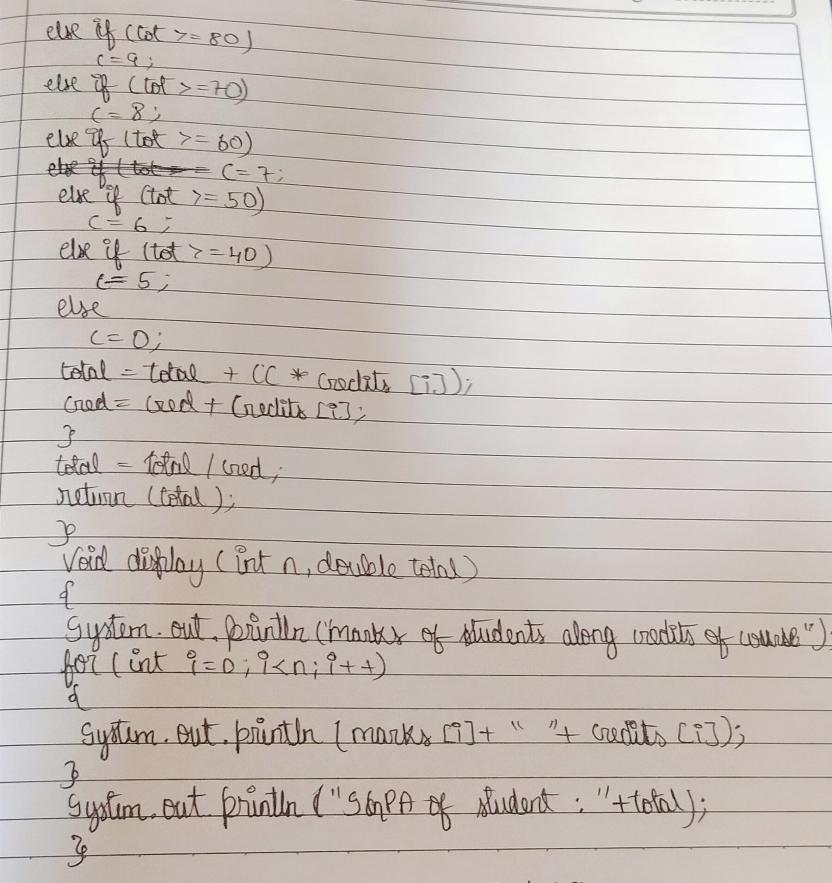 else if (tot >= 80)
c = 9;
else if (tot >= 70)
c = 8;
else if (tot >= 60)
else if (tot = = c = 7;
else if (tot >= 50)
c = 6;
else if (tot >= 40)
c = 5;
else
c = 0;
total = total + (c * credits [i]);
cred = cred + credits [i];
}
total = total / cred;
return (total);
}
void display (int n, double total)
{
System.out.println ("marks of students along credits of course");
for (int i=0; i<n; i++)
{
System.out.println (marks [i] + " " + credits [i]);
}
System.out println ("SGPA of student : "+total);
}